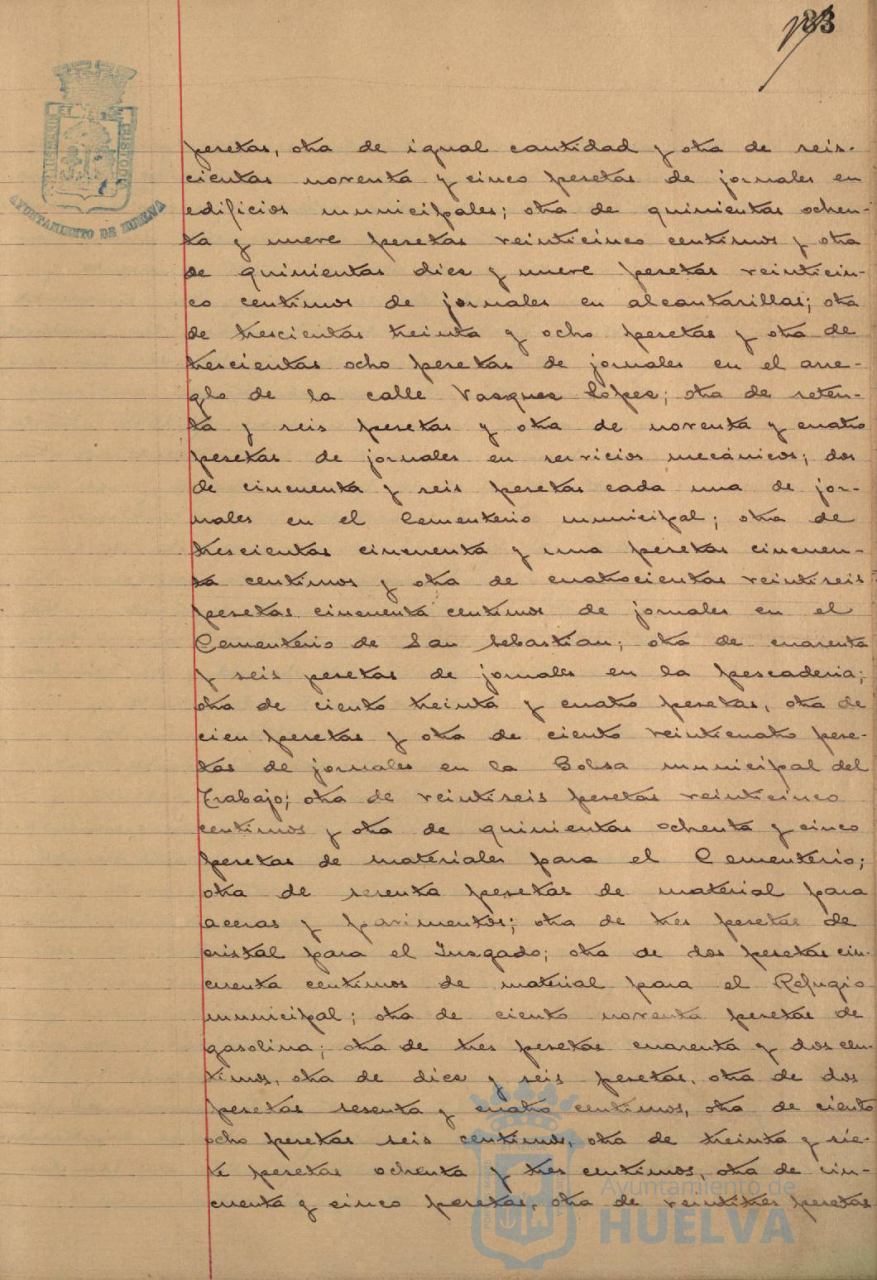 83
AYUNTAMIENTO DE HUELVA
pesetas, otra de igual cantidad y otra de seis-
cientas noventa y cinco pesetas de jornales en
edificios municipales; otra de quinientas ochen-
ta y nueve pesetas veinticinco centimos y otra
de quinientas diez y nueve pesetas veinticin-
co centimos de jornales en alcantarillas; otra
de trescientas treinta y ocho pesetas y otra de
trescientas ocho pesetas de jornales en el arre-
glo de la calle Vasquez Lopez; otra de seten-
ta y seis pesetas y otra de noventa y cuatro
pesetas de jornales en servicios mecánicos; dos
de cincuenta y seis pesetas cada una de jor-
nales en el Cementerio municipal; otra de
trescientas cincuenta y una pesetas cincuen-
ta centimos y otra de cuatrocientas veintiseis
pesetas cincuenta centimos de jornales en el
Cementerio de San Sebastian; otra de cuarenta
y seis pesetas de jornales en la pescaderia;
otra de ciento treinta y cuatro pesetas, otra de
cien pesetas y otra de ciento veinticuatro pese-
tas de jornales en la Bolsa municipal del
Trabajo; otra de veintiseis pesetas veinticinco
centimos y otra de quinientas ochenta y cinco
pesetas de materiales para el Cementerio;
otra de sesenta pesetas de material para
aceras y pavimentos; otra de tres pesetas de
cristal para el Juzgado; otra de dos pesetas cin-
cuenta centimos de material para el Refugio
municipal; otra de ciento noventa pesetas de
gasolina; otra de tres pesetas cuarenta y dos cen-
timos, otra de diez y seis pesetas, otra de dos
pesetas sesenta y cuatro centimos, otra de ciento
ocho pesetas seis centimos, otra de treinta y sie-
te pesetas ochenta y tres centimos, otra de cin-
cuenta y cinco pesetas, otra de veintitres pesetas
Ayuntamiento de
HUELVA